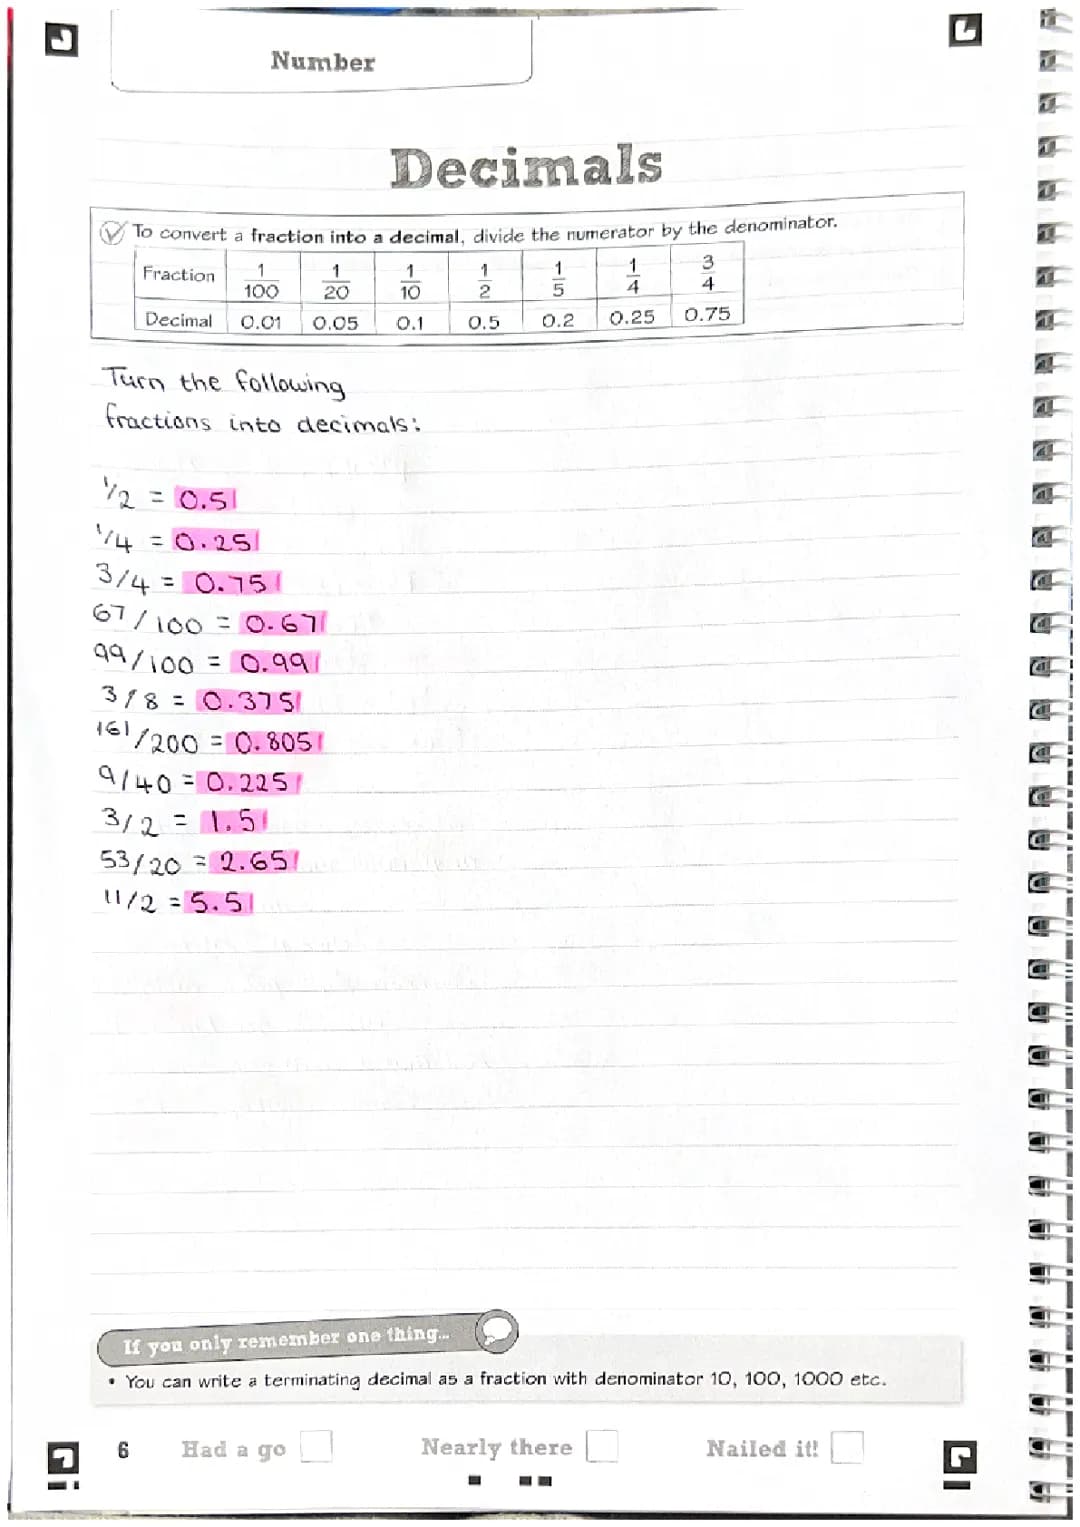 Number
Decimals
To convert a fraction into a decimal, divide the numerator by the denominator.
Fraction 1/100 1/20 1/10 1/2 1/5 1/4 3/4
Decimal 0.01 0.05 0.1 0.5 0.2 0.25 0.75
Turn the following
fractions into decimals:
1/2 = 0.5
1/4 = 0.25
3/4 = 0.75
67/100 = 0.67
99/100 = 0.99
3/8 = 0.375
161/200 = 0.805
9/40 = 0.225
3/2 = 1.5
53/20 = 2.65
11/2 = 5.5
If you only remember one thing...
• You can write a terminating decimal as a fraction with denominator 10, 100, 1000 etc.
6 Had a go Nearly there Nailed it!